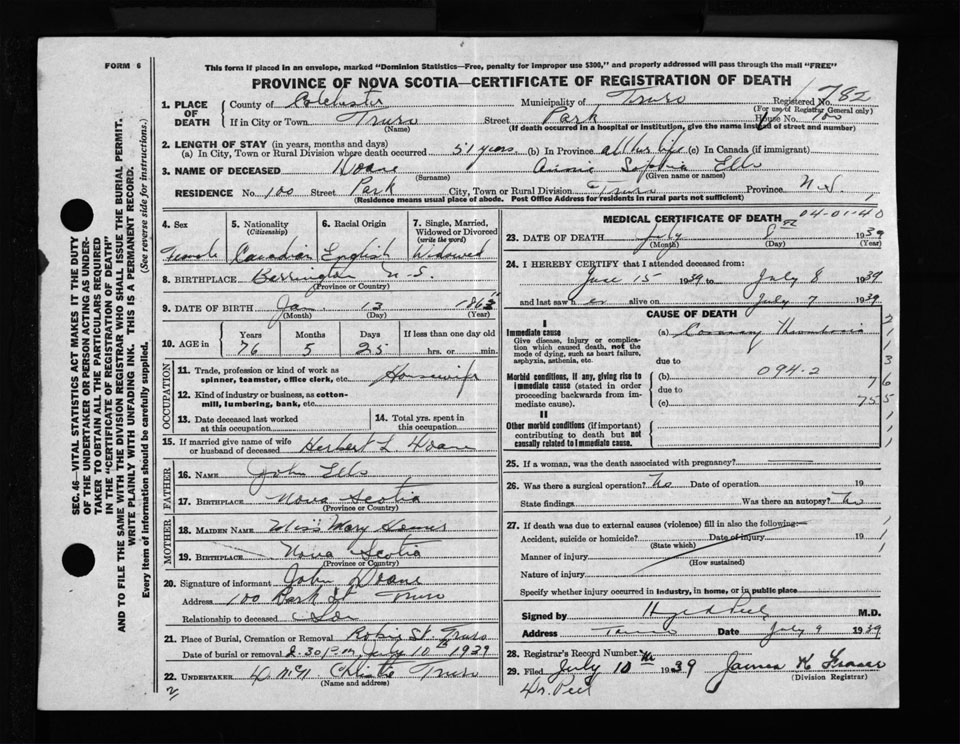 FORM 6
This form if placed in an envelope, marked "Dominion Statistics—Free, penalty for improper use $300," and properly addressed will pass through the mail "FREE"
PROVINCE OF NOVA SCOTIA—CERTIFICATE OF REGISTRATION OF DEATH
1. PLACE OF DEATH County of Colchester Municipality of Truro Registered No. 782
(For use of Registrar General only)
If in City or Town Truro Street Park House No. 100
(Name) (If death occurred in a hospital or institution, give the name instead of street and number)
2. LENGTH OF STAY (in years, months and days)
(a) In City, Town or Rural Division where death occurred 51 years (b) In Province all her life (c) In Canada (if immigrant)
3. NAME OF DECEASED Doane Annie Sophia Ells
(Surname) (Given name or names)
RESIDENCE No. 100 Street Park City, Town or Rural Division Truro Province N.S
(Residence means usual place of abode. Post Office Address for residents in rural parts not sufficient)
4. Sex Female
5. Nationality (Citizenship) Canadian
6. Racial Origin English
7. Single, Married, Widowed or Divorced (write the word) Widowed
8. BIRTHPLACE Barrington N.S.
(Province or Country)
9. DATE OF BIRTH Jan. 13 1863
(Month) (Day) (Year)
10. AGE in Years Months Days If less than one day old
76 5 25 hrs. or min.
OCCUPATION
11. Trade, profession or kind of work as spinner, teamster, office clerk, etc. Housewife
12. Kind of industry or business, as cotton-mill, lumbering, bank, etc.
13. Date deceased last worked at this occupation
14. Total yrs. spent in this occupation
15. If married give name of wife or husband of deceased Herbert L. Doane
FATHER
16. NAME John Ells
17. BIRTHPLACE Nova Scotia
(Province or Country)
MOTHER
18. MAIDEN NAME Miss Mary
19. BIRTHPLACE Nova Scotia
(Province or Country)
20. Signature of informant John Doane
Address 100 Park St Truro
Relationship to deceased Son
21. Place of Burial, Cremation or Removal Robie St. Truro
Date of burial or removal 2.30 P.M. July 10th 1939
22. UNDERTAKER Truro
(Name and address)
MEDICAL CERTIFICATE OF DEATH
04-01-40
23. DATE OF DEATH July 8 1939
(Month) (Day) (Year)
24. I HEREBY CERTIFY that I attended deceased from:
June 15 1939 to July 8 1939
and last saw her alive on July 7 1939
CAUSE OF DEATH
I
Immediate cause (a) Coronary Thrombosis
Give disease, injury or complication which caused death, not the mode of dying, such as heart failure, asphyxia, asthenia, etc.
due to
Morbid conditions, if any, giving rise to immediate cause (stated in order proceeding backwards from immediate cause). (b) 094-2
due to
(c)
II
Other morbid conditions (if important) contributing to death but not causally related to immediate cause.
25. If a woman, was the death associated with pregnancy?
26. Was there a surgical operation? No Date of operation 19
State findings Was there an autopsy? No
27. If death was due to external causes (violence) fill in also the following:—
Accident, suicide or homicide? Date of injury 19
(State which)
Manner of injury
(How sustained)
Nature of injury
Specify whether injury occurred in industry, in home, or in public place
Signed by M.D.
Address Truro Date July 9 1939
28. Registrar's Record Number
29. Filed July 10th 1939 James K Fraser
(Division Registrar)
Dr. Peel
SEC. 46—VITAL STATISTICS ACT MAKES IT THE DUTY
OF THE UNDERTAKER OR PERSON ACTING AS UNDER-
TAKER TO OBTAIN ALL THE PARTICULARS REQUIRED
IN THE "CERTIFICATE OF REGISTRATION OF DEATH"
AND TO FILE THE SAME WITH THE DIVISION REGISTRAR WHO SHALL ISSUE THE BURIAL PERMIT.
WRITE PLAINLY WITH UNFADING INK. THIS IS A PERMANENT RECORD.
Every item of Information should be carefully supplied. (See reverse side for instructions.)